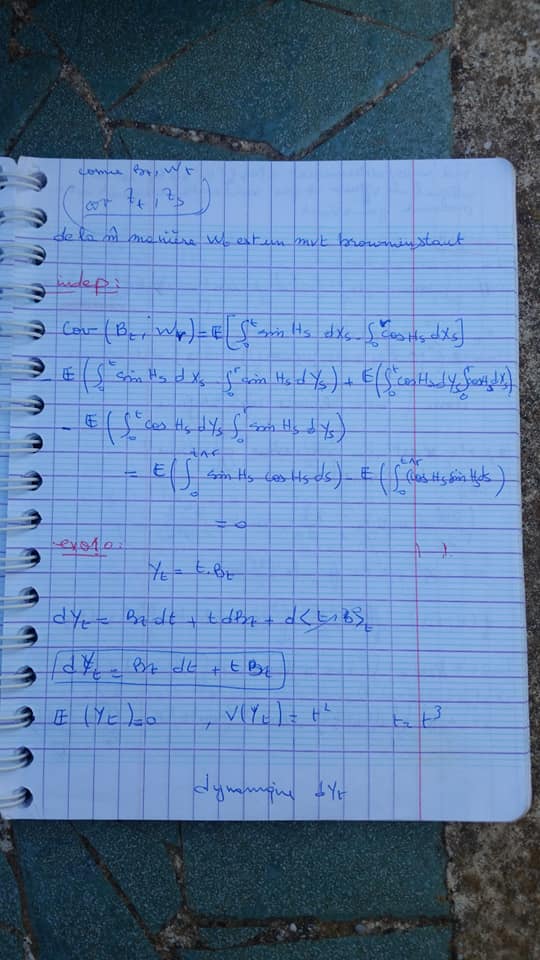 comme Bt, Wt
cov Zt, Zs
de la m̂ manière Wt est un mvt brownien stand
indep:
Cov (Bt, Wr) = E[∫₀ᵗ sin Hs dXs . ∫₀ʳ cos Hs dXs]
- E(∫₀ᵗ sin Hs dXs . ∫₀ʳ sin Hs dYs) + E(∫₀ᵗ cos Hs dYs ∫₀ʳ cos Hs dXs)
- E(∫₀ᵗ cos Hs dYs ∫₀ʳ sin Hs dYs)
= E(∫₀^{t∧r} sin Hs cos Hs ds) - E(∫₀^{t∧r} cos Hs sin Hs ds)
= 0
exo10:
Yt = t.Bt
dYt = Bt dt + t dBt + d<t, B>t
dYt = Bt dt + t Bt
E(Yt) = 0 , V(Yt) = t² t = t³
dynamique dYt